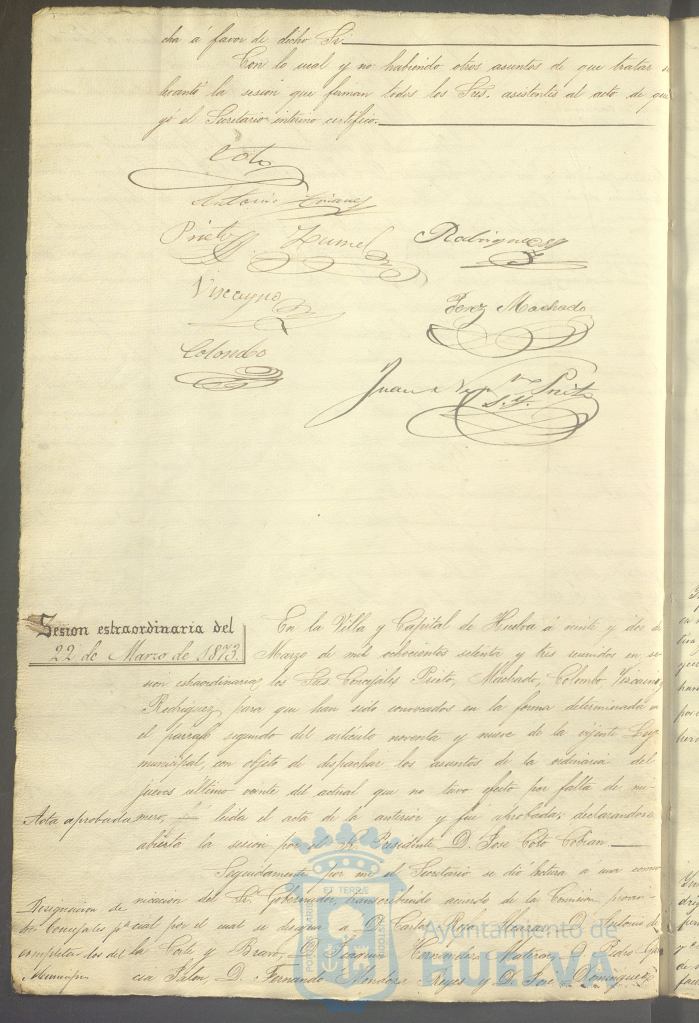 cha á favor de dicho Sr.
Con lo cual y no habiendo otros asuntos de que tratar se
levantó la sesion que firman todos los Sres. asistentes al acto de que
yo el Secretario interino certifico.
Coto
Antonio
Prieto Rodriguez
Vizcayno
Perez Machado
Colombo
Juan Prieto
S. Y.
Sesion estraordinaria del
22 de Marzo de 1873.
En la Villa y Capital de Huelva á veinte y dos de
Marzo de mil ochocientos setenta y tres reunidos en se-
sion estraordinaria los Sres Concejales Prieto, Machado, Colombo Vizcaino,
Rodriguez, para que han sido convocados en la forma determinada en
el parrafo segundo del artículo noventa y nueve de la vijente Ley
municipal, con objeto de despachar los asuntos de la ordinaria del
jueves último veinte del actual que no tuvo efecto por falta de nú-
Acta aprobada
mero, leida el acta de la anterior y fue aprobada; declarandose
abierta la sesion por el Sr. Presidente D. José Coto Cobian
Seguidamente por mi el Secretario se dió lectura a una comu-
Designacion de
nicacion del Sr. Gobernador, transcribiendo acuerdo de la Comision provin-
los Concejales pª
cial por el cual se designa a D. Carlos D. Antonio de
completar los del
la Corte y Bravo, D. Joaquin Hernandez Mateos, D. Pedro Gar-
Municipio
cia Jalon D. Fernando Mondoza Reyes y D. José Dominguez
Ayuntamiento de
HUELVA